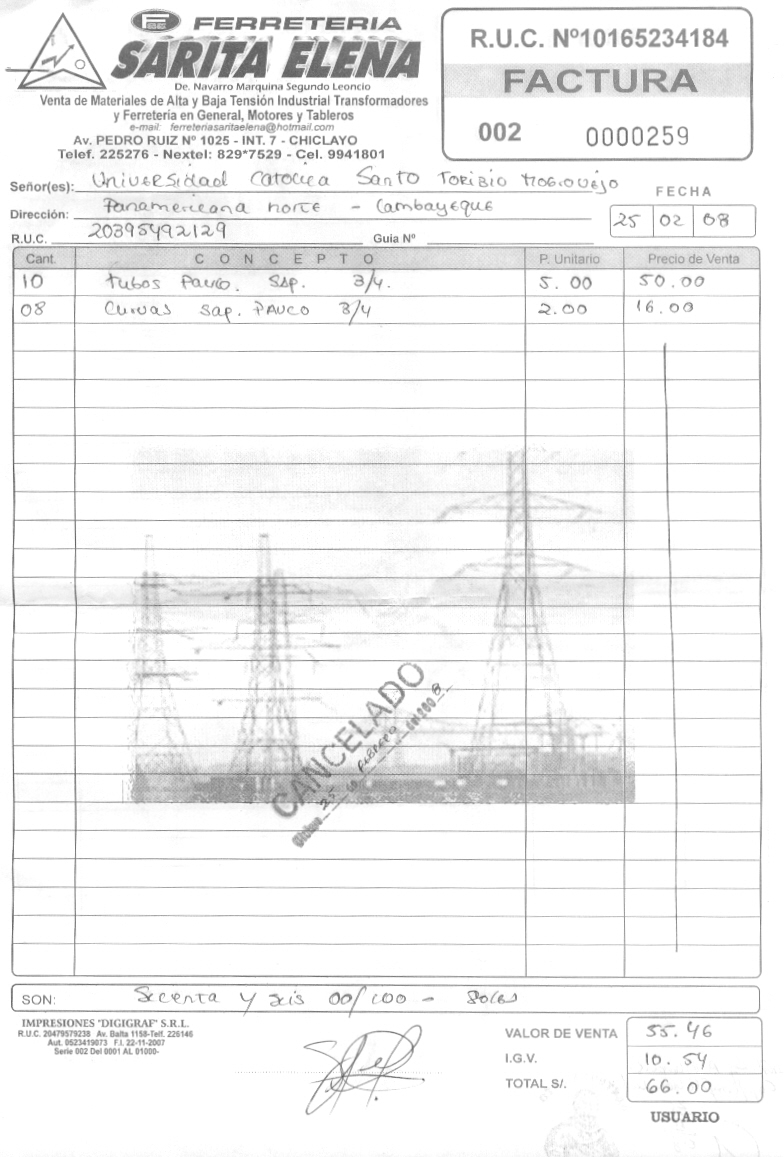 FERRETERIA
SARITA ELENA
De. Navarro Marquina Segundo Leoncio
Venta de Materiales de Alta y Baja Tensión Industrial Transformadores
y Ferretería en General, Motores y Tableros
e-mail: ferreteriasaritaelena@hotmail.com
Av. PEDRO RUIZ Nº 1025 - INT. 7 - CHICLAYO
Telef. 225276 - Nextel: 829*7529 - Cel. 9941801
R.U.C. Nº10165234184
FACTURA
002 0000259
Señor(es): Universidad Catolica Santo Toribio Mogrovejo
Dirección: Panamericana norte - Lambayeque
R.U.C. 20395492129 Guia Nº
FECHA
25 02 08
Cant. CONCEPTO P. Unitario Precio de Venta
10 tubos Pavco. Sap. 3/4. 5.00 50.00
08 Curvas Sap. PAVCO 3/4 2.00 16.00
CANCELADO
25 FEBRERO del 2008
SON: Secenta y seis 00/100 - Soles
IMPRESIONES "DIGIGRAF" S.R.L.
R.U.C. 20479579238 Av. Balta 1158-Telf. 226146
Aut. 0523419073 F.I. 22-11-2007
Serie 002 Del 0001 AL 01000-
VALOR DE VENTA 55.46
I.G.V. 10.54
TOTAL S/. 66.00
USUARIO